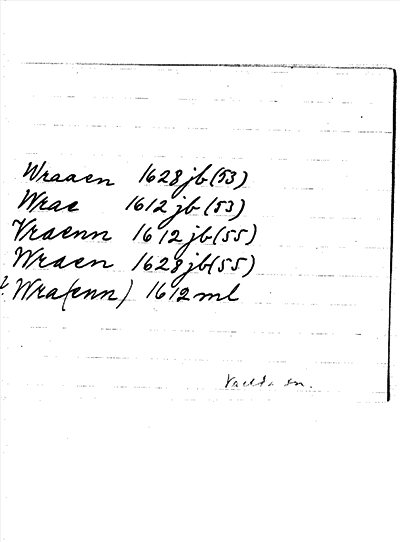 Wraaen 1628 jb (53)
Wrae 1612 jb (53)
Vraenn 1612 jb (55)
Wraen 1628 jb (55)
Wra(enn) 1612 ml